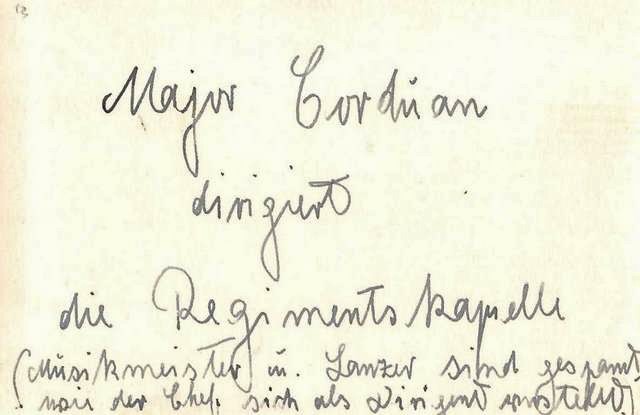 Major Corduan
dirigiert
die Regimentskapelle
(Musikmeister u. Lanzer sind gespannt
wie der Chef sich als Dirigent anstellt)